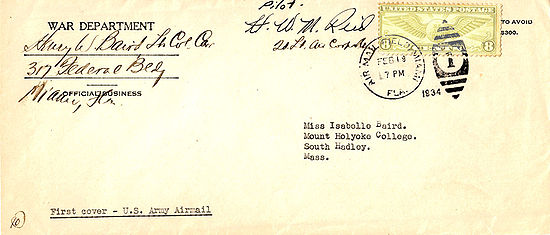 WAR DEPARTMENT
Henry W Baird Lt Col Cav
317 Federal Bldg
Miami, Fla.
OFFICIAL BUSINESS
Pilot-
H. W. M. Reid
2d Lt. Air Corps Res
UNITED STATES POSTAGE
8 8
TO AVOID
$300.
AIR MAIL FIELD, MIAMI
FEB 19
7 PM
FLA.
1934
1
Miss Isabelle Baird.
Mount Holyoke College.
South Hadley.
Mass.
First cover - U.S. Army Airmail